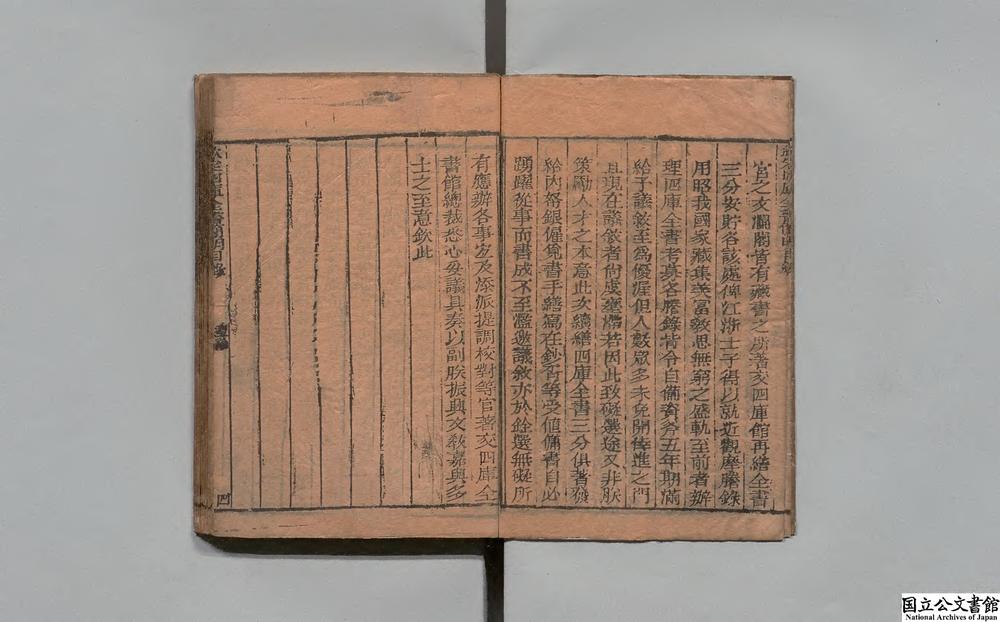 官之文瀾閣皆有藏書之所著交四庫館再繕全書
三分安貯各該處俾江浙士子得以就近觀摩謄錄
用昭我國家藏集美富敎思無窮之盛軌至前者辦
理四庫全書考募各謄錄皆令自備資斧五年期滿
給予議敘至爲優渥但人數眾多未免開倖進之門
且現在議敘者尙虞壅滯若因此致礙選途又非朕
策勵人才之本意此次續繕四庫全書三分俱著發
給內帑銀僱覓書手繕寫在鈔胥等受値傭書自必
踴躍從事而書成不至濫邀議敘亦於銓選無礙所
有應辦各事宜及添派提調校對等官著交四庫全
書館總裁悉心妥議具奏以副朕振興文敎嘉與多
士之至意欽此
四
国立公文書館
National Archives of Japan